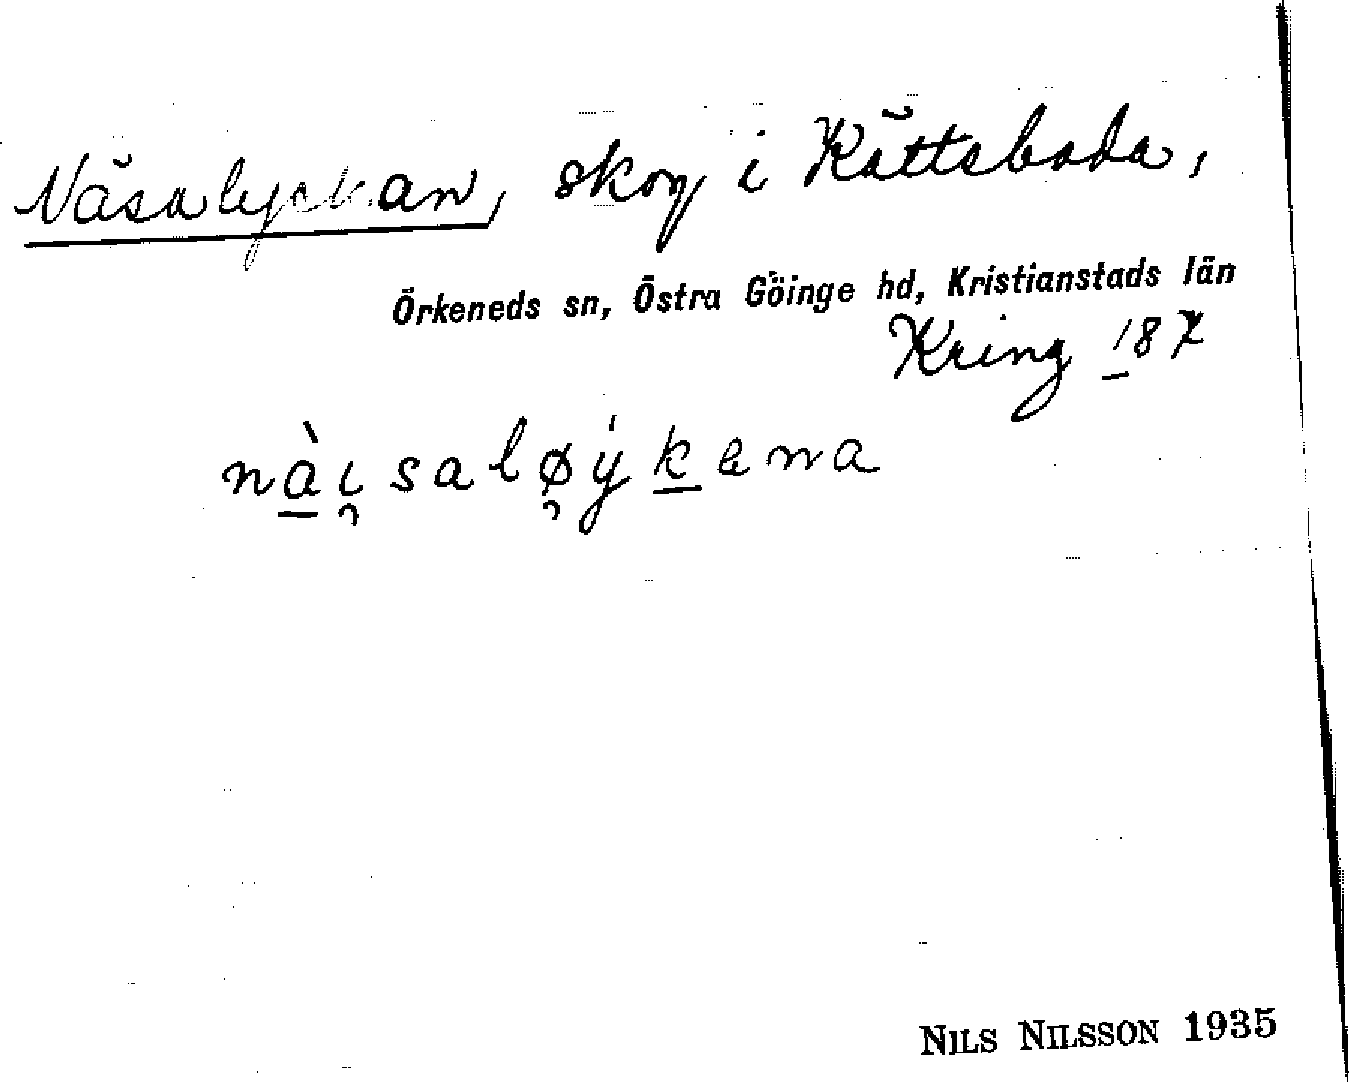 Näsalyckan, skog i Kättsboda,
Örkeneds sn, Östra Göinge hd, Kristianstads län
Kring 187
nàị saløýkana
NILS NILSSON 1935